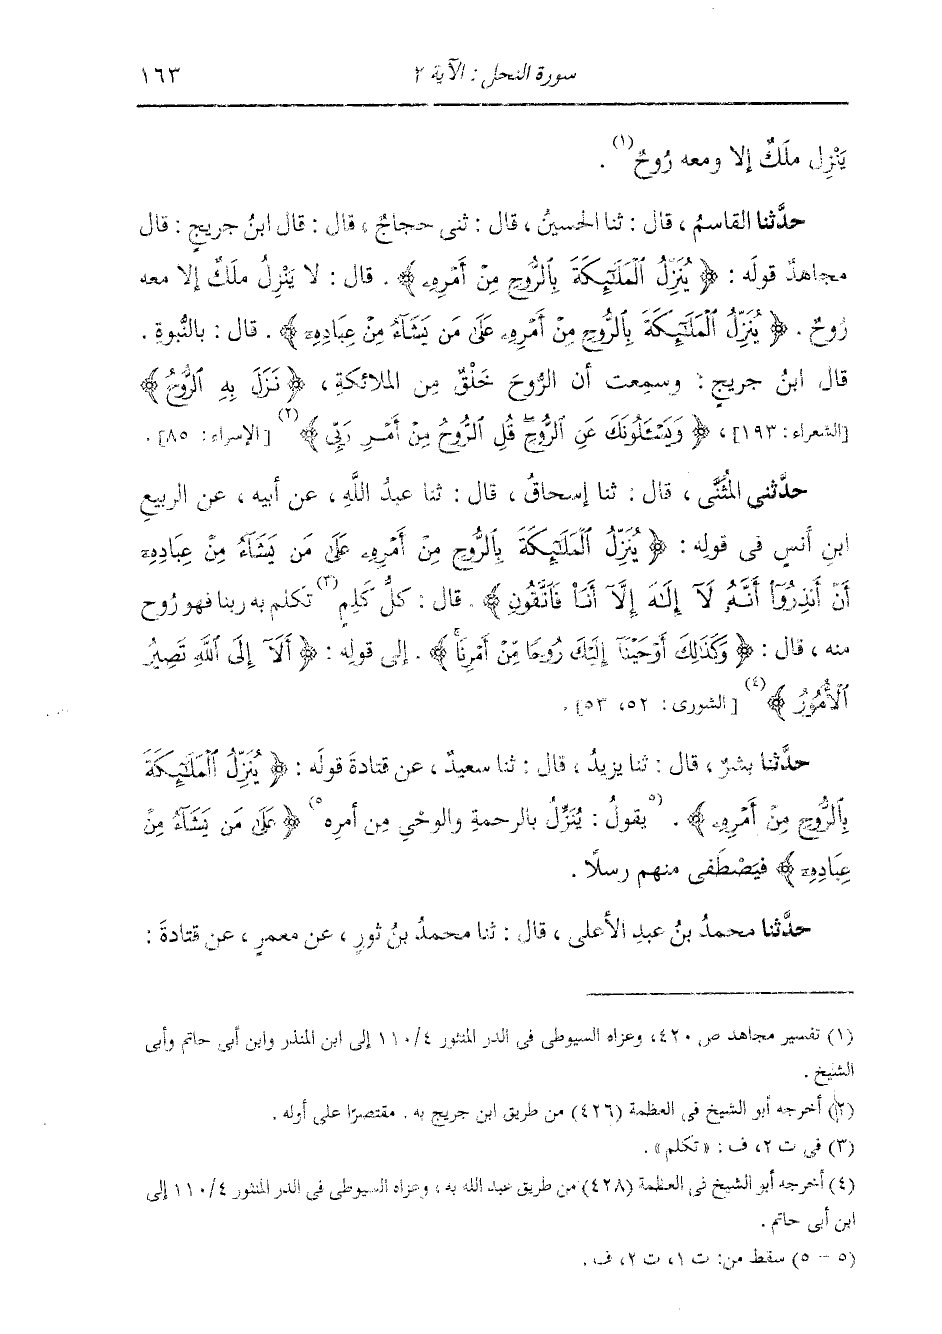 سورة النحل : الآية ٢ ١٦٣
يَنْزِل ملَكٌ إلا ومعه رُوحٌ(١) .
حدَّثنا القاسمُ ، قال : ثنا الحسينُ ، قال : ثنى حجاجٌ ، قال : قال ابنُ جريجٍ : قال
مجاهدٌ قولَه : ﴿ يُنَزِّلُ ٱلْمَلَٰٓئِكَةَ بِٱلرُّوحِ مِنْ أَمْرِهِۦ ﴾ . قال : لا يَنْزِلُ ملَكٌ إلا معه
رُوحٌ . ﴿ يُنَزِّلُ ٱلْمَلَٰٓئِكَةَ بِٱلرُّوحِ مِنْ أَمْرِهِۦ عَلَىٰ مَن يَشَآءُ مِنْ عِبَادِهِۦٓ ﴾ . قال : بالنُّبوةِ .
قال ابنُ جريجٍ : وسمِعت أن الرُّوحَ خَلْقٌ مِن الملائكةِ ، ﴿ نَزَلَ بِهِ ٱلرُّوحُ ﴾
[الشعراء : ١٩٣] ، ﴿ وَيَسْـَٔلُونَكَ عَنِ ٱلرُّوحِۖ قُلِ ٱلرُّوحُ مِنْ أَمْرِ رَبِّى ﴾(٢) [الإسراء : ٨٥] .
حدَّثني المُثَنَّى ، قال : ثنا إسحاقُ ، قال : ثنا عبدُ اللَّهِ ، عن أبيه ، عن الربيعِ
ابنِ أنسٍ فى قولِه : ﴿ يُنَزِّلُ ٱلْمَلَٰٓئِكَةَ بِٱلرُّوحِ مِنْ أَمْرِهِۦ عَلَىٰ مَن يَشَآءُ مِنْ عِبَادِهِۦٓ
أَنْ أَنذِرُوٓا۟ أَنَّهُۥ لَآ إِلَٰهَ إِلَّآ أَنَا۠ فَٱتَّقُونِ ﴾ . قال : كلُّ كَلِمٍ(٣) تكلم به ربنا فهو رُوح
منه ، قال : ﴿ وَكَذَٰلِكَ أَوْحَيْنَآ إِلَيْكَ رُوحًا مِّنْ أَمْرِنَاۚ ﴾ . إلى قولِه : ﴿ أَلَآ إِلَى ٱللَّهِ تَصِيرُ
ٱلْأُمُورُ ﴾(٤) [ الشورى : ٥٢، ٥٣] .
حدَّثنا بشرٌ ، قال : ثنا يزيدُ ، قال : ثنا سعيدٌ ، عن قتادةَ قولَه : ﴿ يُنَزِّلُ ٱلْمَلَٰٓئِكَةَ
بِٱلرُّوحِ مِنْ أَمْرِهِۦ ﴾ . (٥يقولُ : يُنَزِّلُ بالرحمةِ والوحْيِ مِن أمرِه٥) ﴿ عَلَىٰ مَن يَشَآءُ مِنْ
عِبَادِهِۦٓ ﴾ فيَصْطَفى منهم رسلًا .
حدَّثنا محمدُ بنُ عبدِ الأعلى ، قال : ثنا محمدُ بنُ ثورٍ ، عن معمرٍ ، عن قتادةَ :
(١) تفسير مجاهد ص ٤٢٠، وعزاه السيوطى فى الدر المنثور ١١٠/٤ إلى ابن المنذر وابن أبى حاتم وأبى
الشيخ .
(٢) أخرجه أبو الشيخ فى العظمة (٤٢٦) من طريق ابن جريج به . مقتصرًا على أوله .
(٣) فى ت ٢، ف : « تكلم » .
(٤) أخرجه أبو الشيخ فى العظمة (٤٢٨) من طريق عبد الله به ، وعزاه السيوطى فى الدر المنثور ١١٠/٤ إلى
ابن أبى حاتم .
(٥ – ٥) سقط من: ت ١، ت ٢، ف .